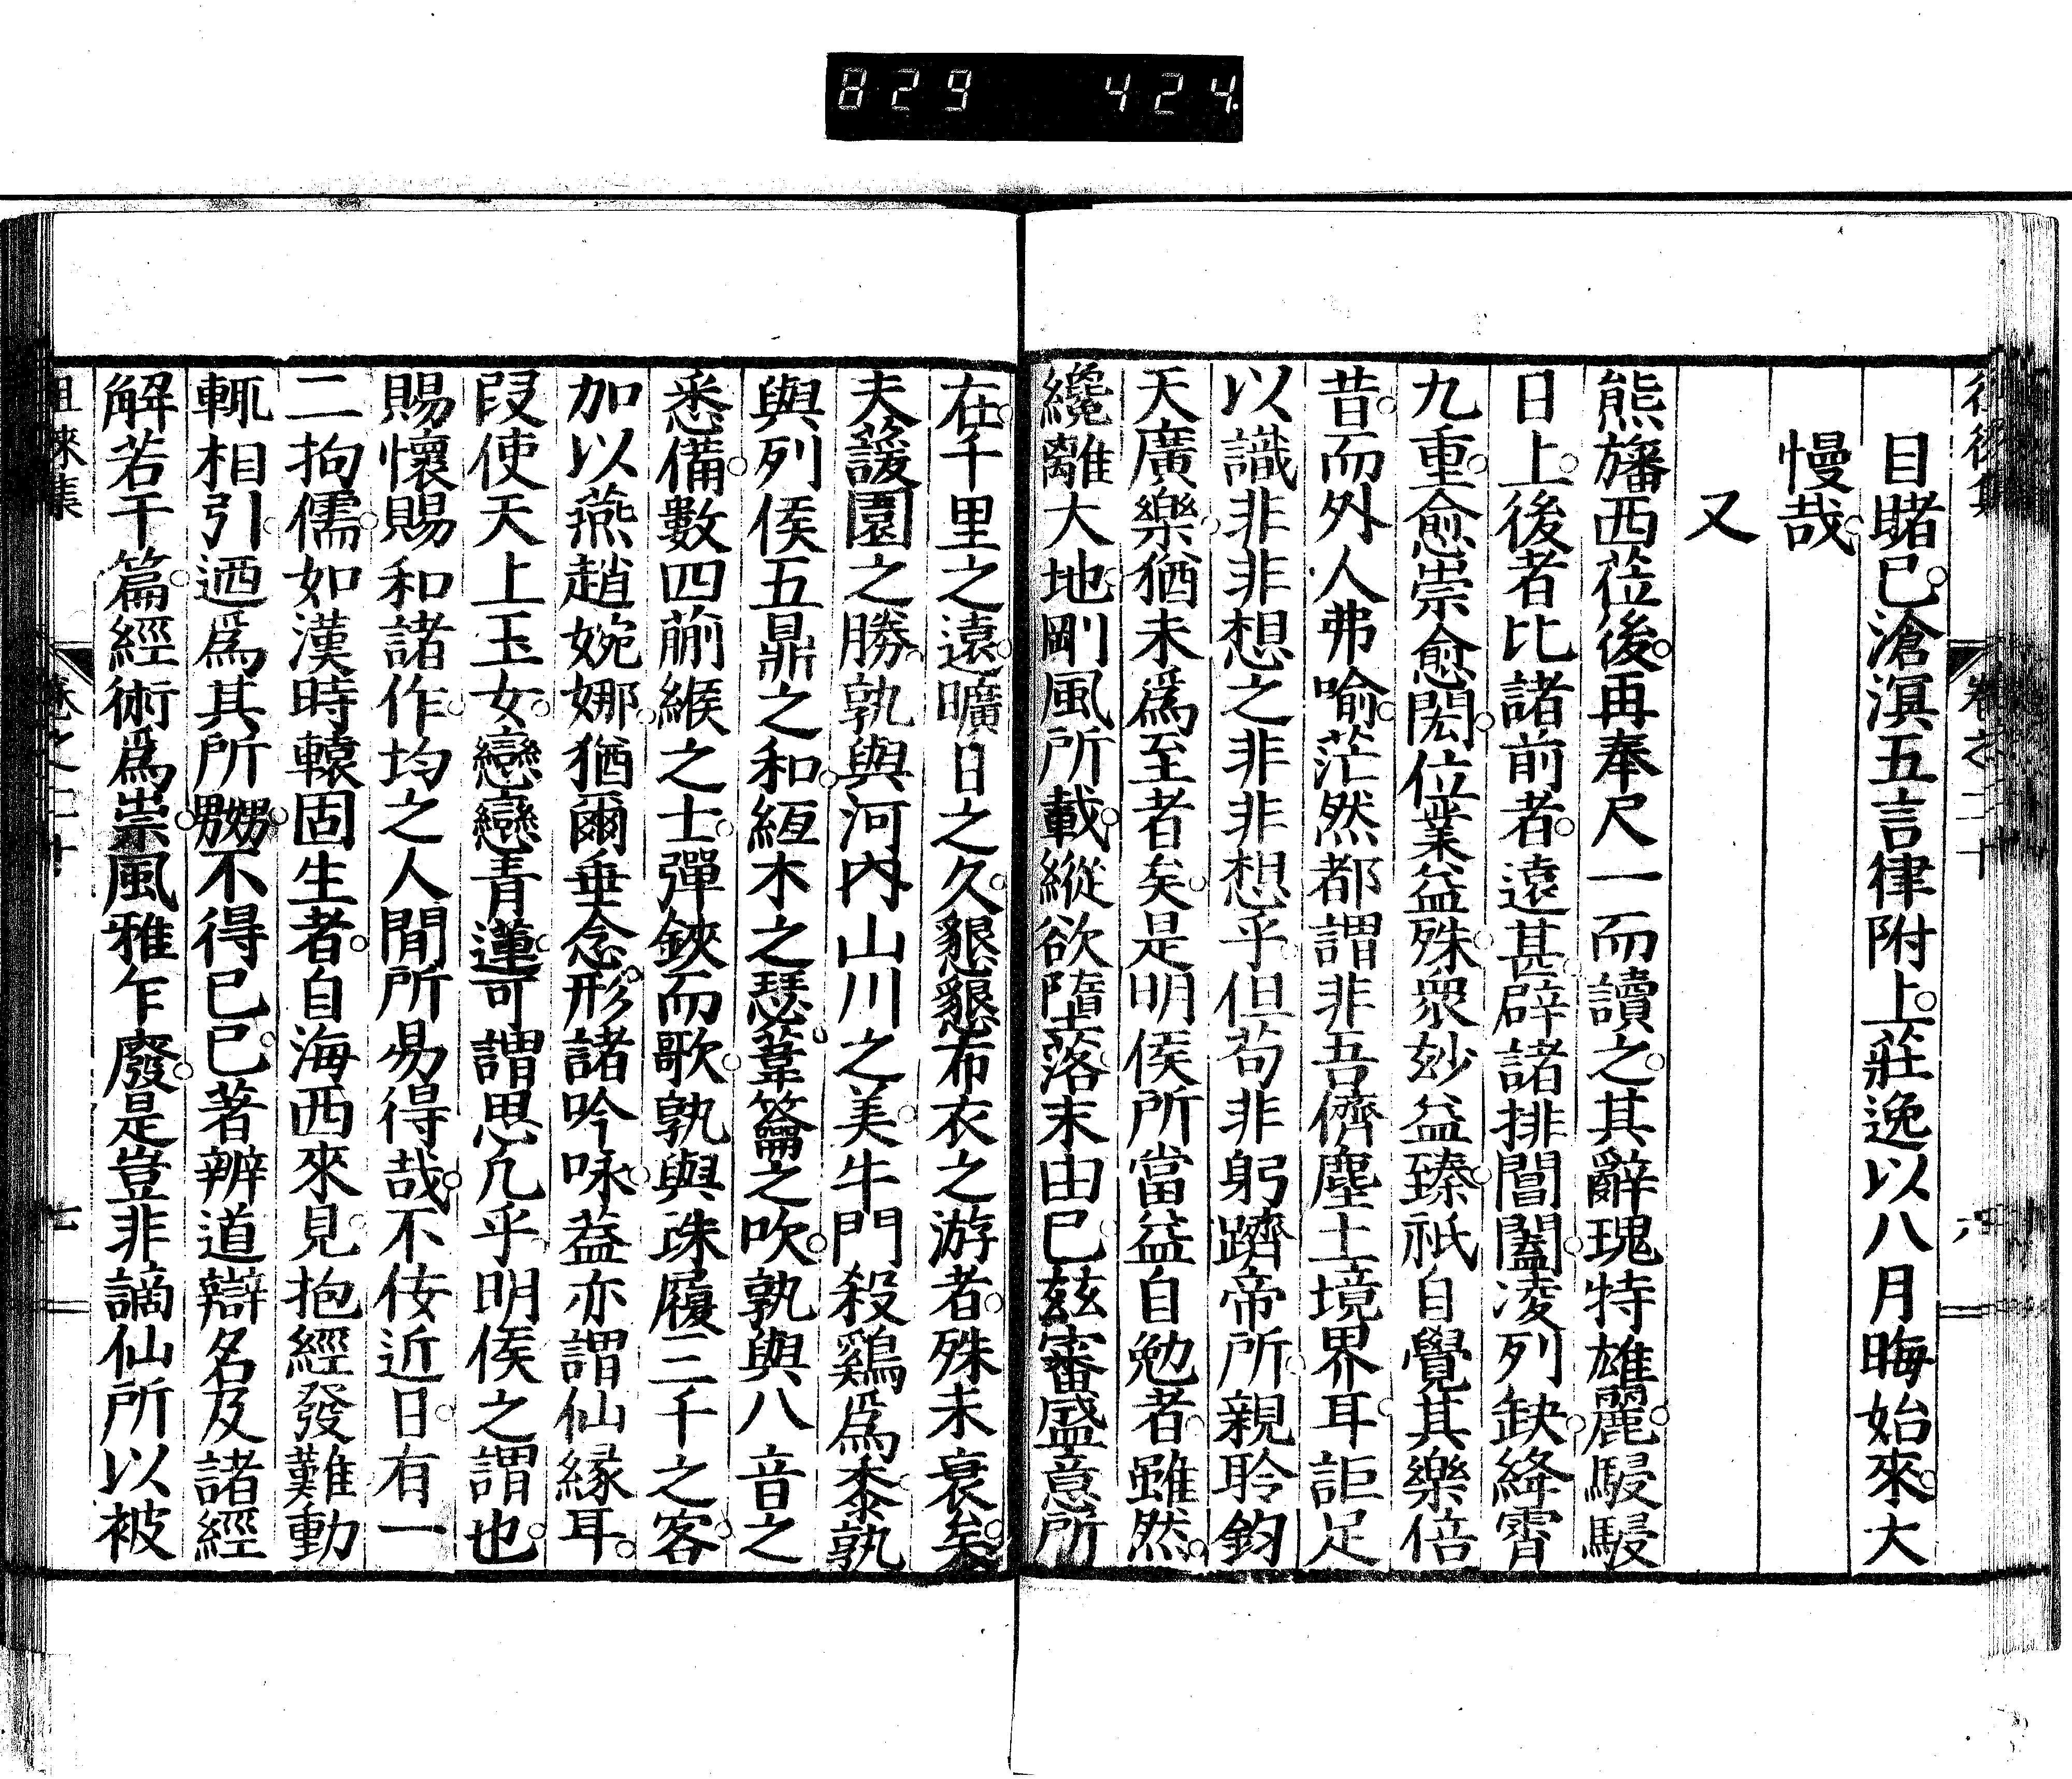 829 424
目睹已滄溟五言律附上莊逸以八月晦始來大
慢哉
又
熊旛西蒞後再奉尺一而讀之其辭瑰特雄麗駸駸
日上後者比諸前者遠甚辟諸排閶闔淩列缺絳霄
九重愈崇愈閎位業益殊衆玅益臻祇自覺其樂倍
昔而外人弗喻茫然都謂非吾儕塵土境界耳詎足
以識非非想之非非想乎但苟非躬躋帝所親聆鈞
天廣樂猶未爲至者矣是明侯所當益自勉者雖然
纔離大地剛風所載縱欲墮落末由已玆審盛意所
在千里之遠曠日之久懇懇布衣之游者殊未衰矣
夫蘐園之勝孰與河內山川之美牛門殺鷄爲黍孰
與列侯五鼎之和絙木之瑟葦籥之吹孰與八音之
悉備數四蒯緱之士彈鋏而歌孰與珠履三千之客
加以燕趙婉娜猶爾垂念形諸吟咏蓋亦謂仙緣耳
叚使天上玉女戀戀靑蓮可謂思凡乎明侯之謂也
賜懷賜和諸作均之人間所易得哉不佞近日有一
二拘儒如漢時轅固生者自海西來見抱經發難動
輒相引迺爲其所嬲不得已已著辨道辯名及諸經
解若干篇經術爲祟風雅乍廢是豈非謫仙所以被
徂徠集 卷之二十 七